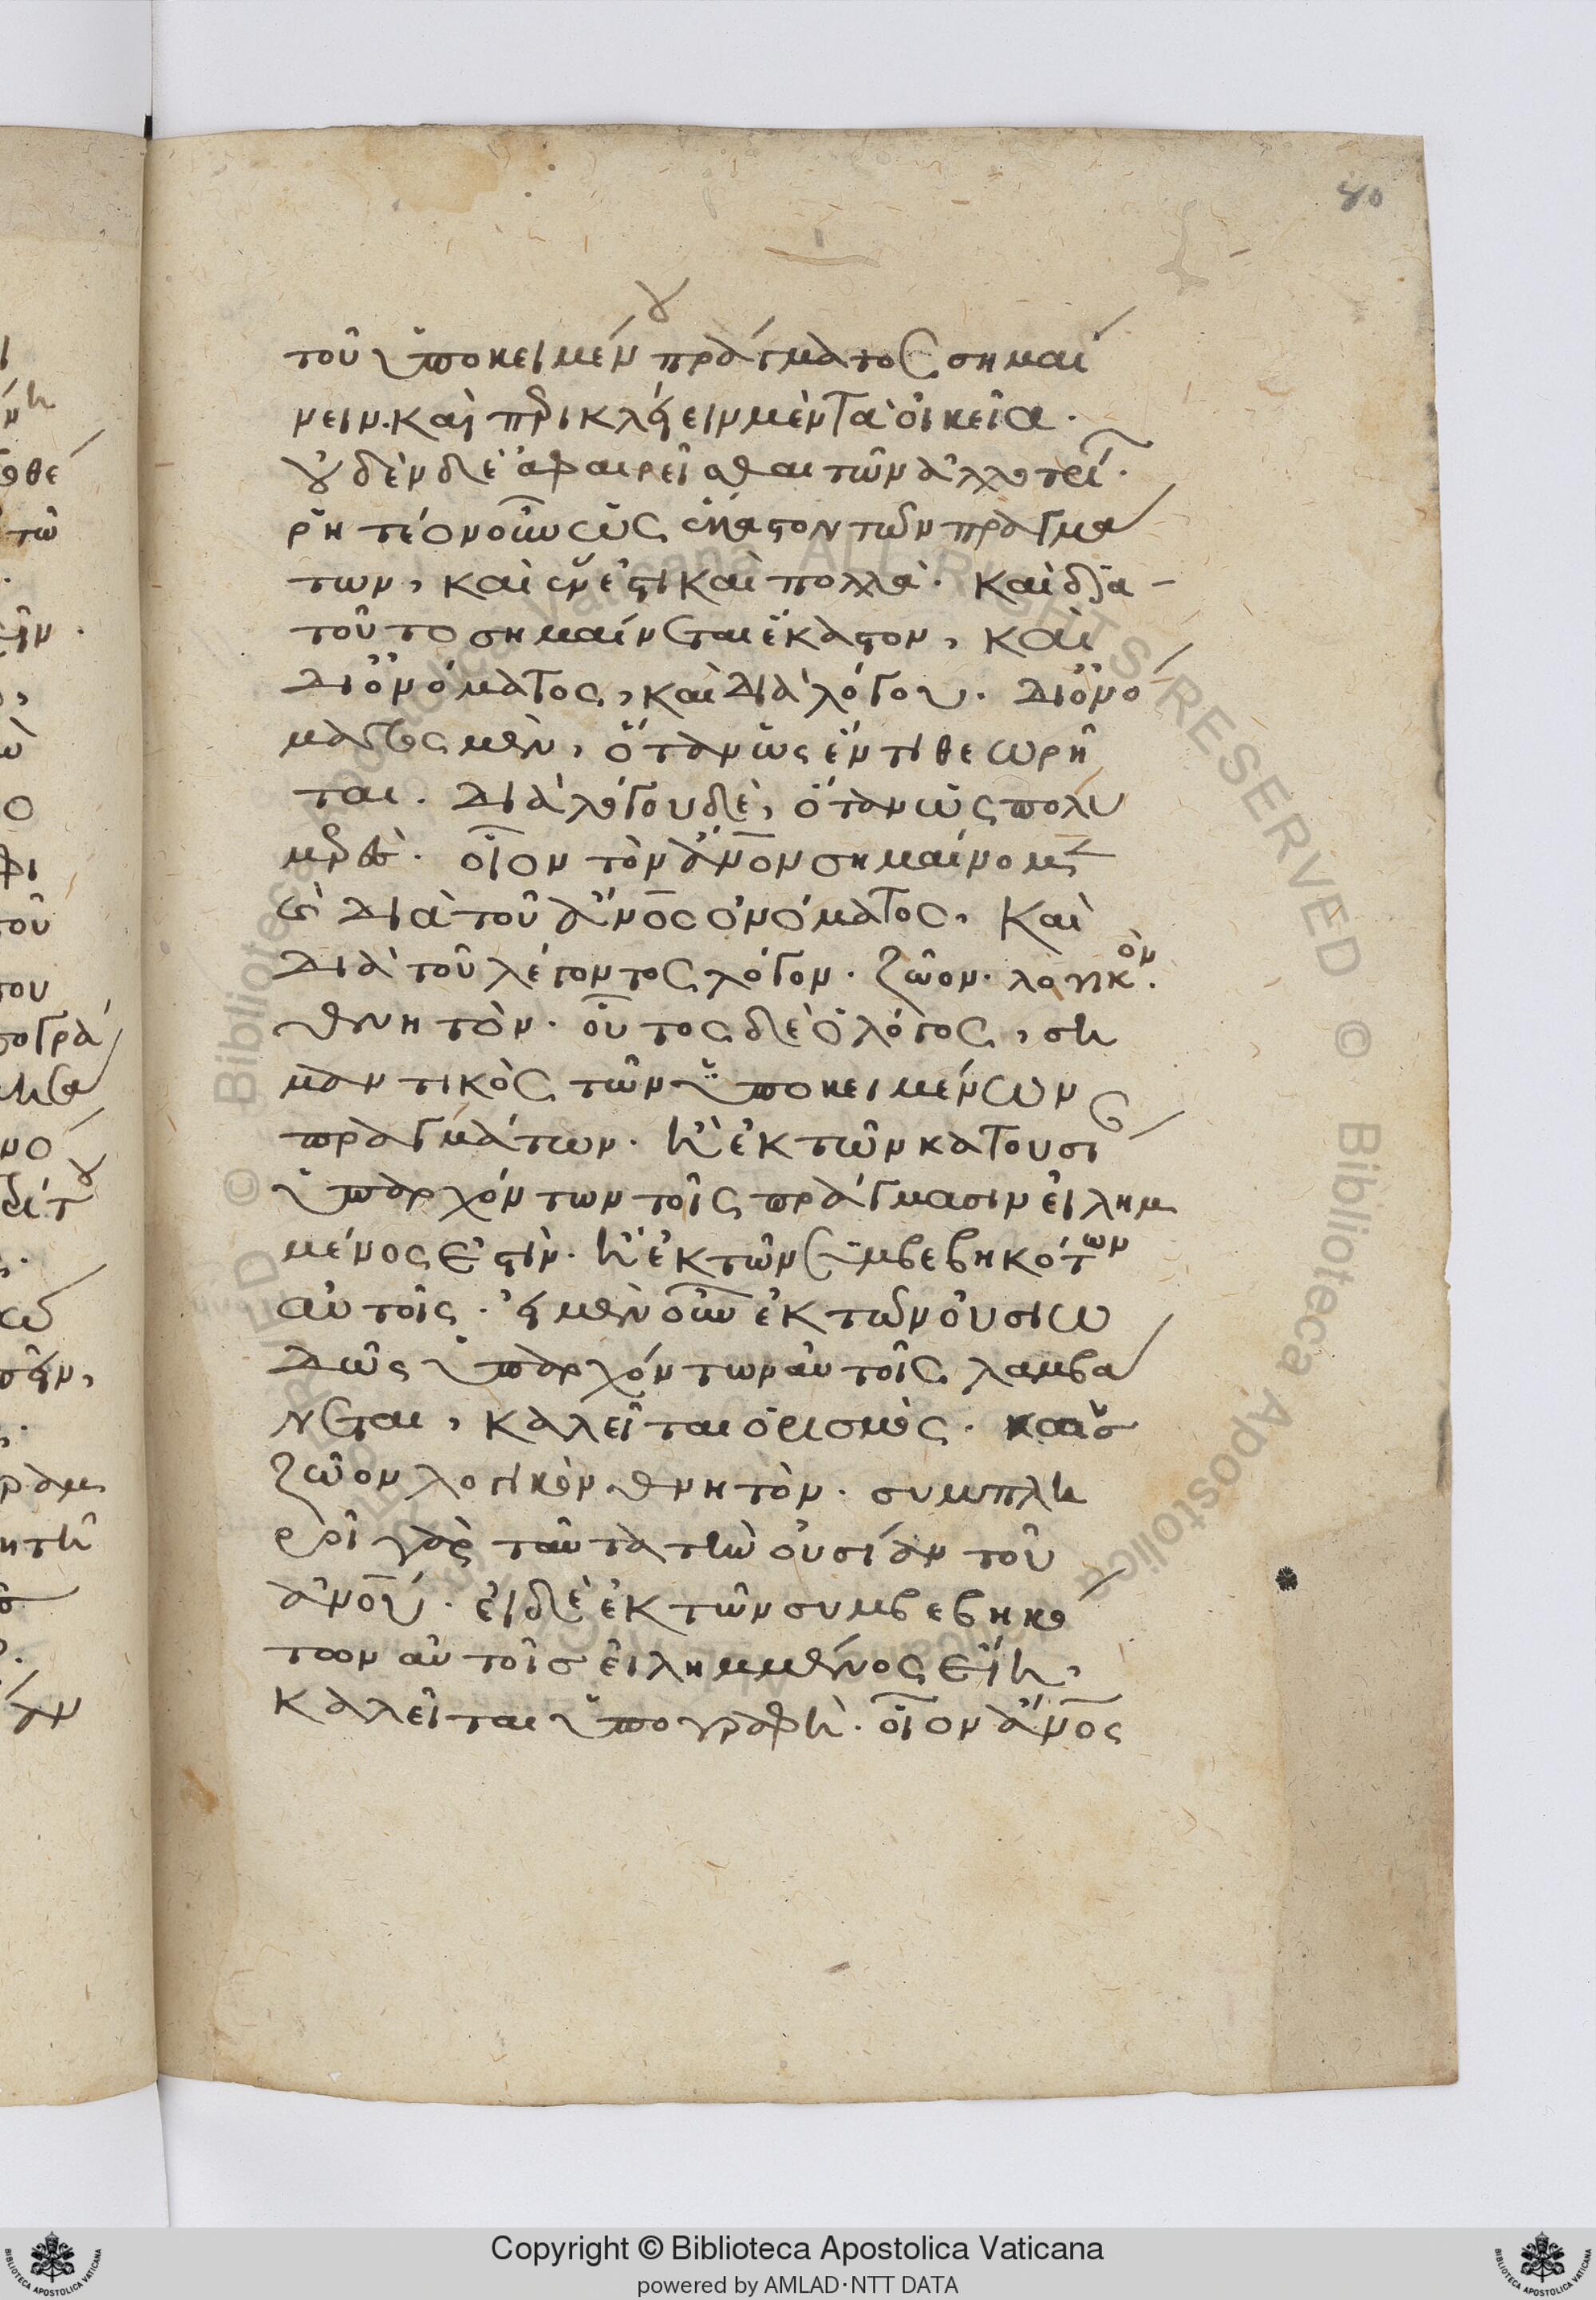 80
τοῦ ὑποκειμένου πράγματος σημαί
νειν. καὶ περικλήειν μὲν τὰ οἰκεῖα.
οὐδὲν δὲ ἀφαιρεῖσθαι τῶν ἀλλοτρί.
ῥητέον οὖν ὡς ἕκαστον τῶν πραγμά
των, καὶ ἕν ἐστι καὶ πολλά. καὶ δϊα-
τοῦτο σημαίνεται ἕκαστον, καὶ
δι ὀνόματος, καὶ διὰ λόγου. δι ὀνό
ματος μὲν, ὅταν ὡς ἕν τι θεωρῆ
ται. διὰ λόγου δὲ, ὅταν ὡς πολυ
μερὲς. οἷον τὸν ἄνον σημαίνομεν
καὶ διὰ τοῦ ἄνος ὀνόματος, καὶ
διὰ τοῦ λέγοντος λόγον. ζῶον. λογικὸν.
θνητὸν. οὗτος δὲ ὁ λόγος, ση
μαντικὸς τῶν ὑποκειμένων
πραγμάτων. ἢ ἐκ τῶν κατουσί
ὑπαρχόντων τοῖς πράγμασιν εἰλημ
μένος ἐστὶν. ἢ ἐκ τῶν συμβεβηκότων
αὐτοῖς. εἰ μὲν οὖν ἐκ τῶν οὐσιω
δῶς ὑπαρχόντων αὐτοῖς λαμβά
νεται, καλεῖται ὁρισμὸς.
ζῶον λογικὸν θνητὸν. συμπλη
ροῖ γὰρ ταῦτα τὴν οὐσίαν τοῦ
ἀνου. εἰ δὲ ἐκ τῶν συμβεβηκό
των αὐτοῖσ εἰλημμένος εἴη,
καλεῖται ὑπογραφὴ. οἷον ἄνος
Copyright © Biblioteca Apostolica Vaticana
powered by AMLAD·NTT DATA